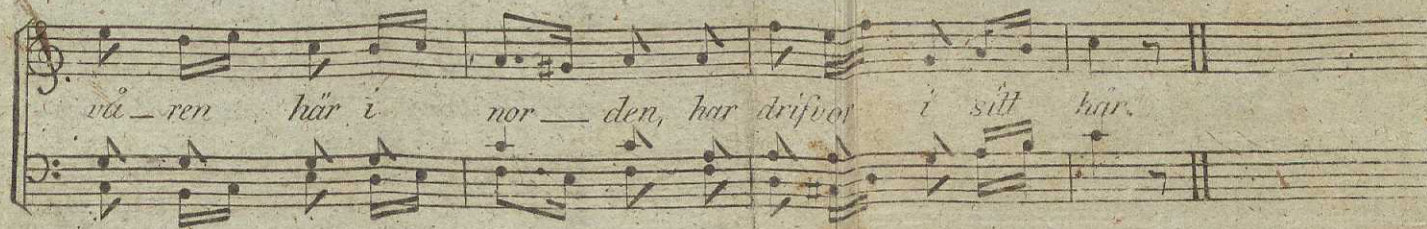 vå_ren här i nor__den, har drifvor i sitt hår.